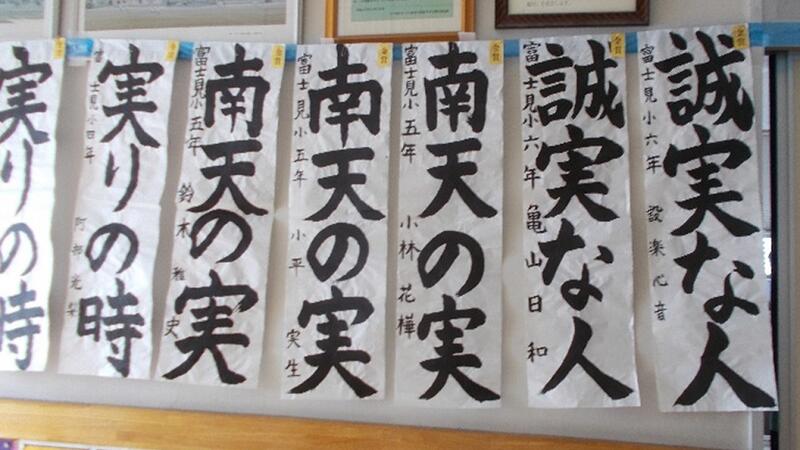 誠実な人
富士見小六年 設楽心音
金賞
誠実な人
富士見小六年 亀山日和
金賞
南天の実
富士見小五年 小林花樺
金賞
南天の実
富士見小五年 小平実生
金賞
南天の実
富士見小五年 鈴木稚史
金賞
実りの時
富士見小四年 阿部光梨
実りの時